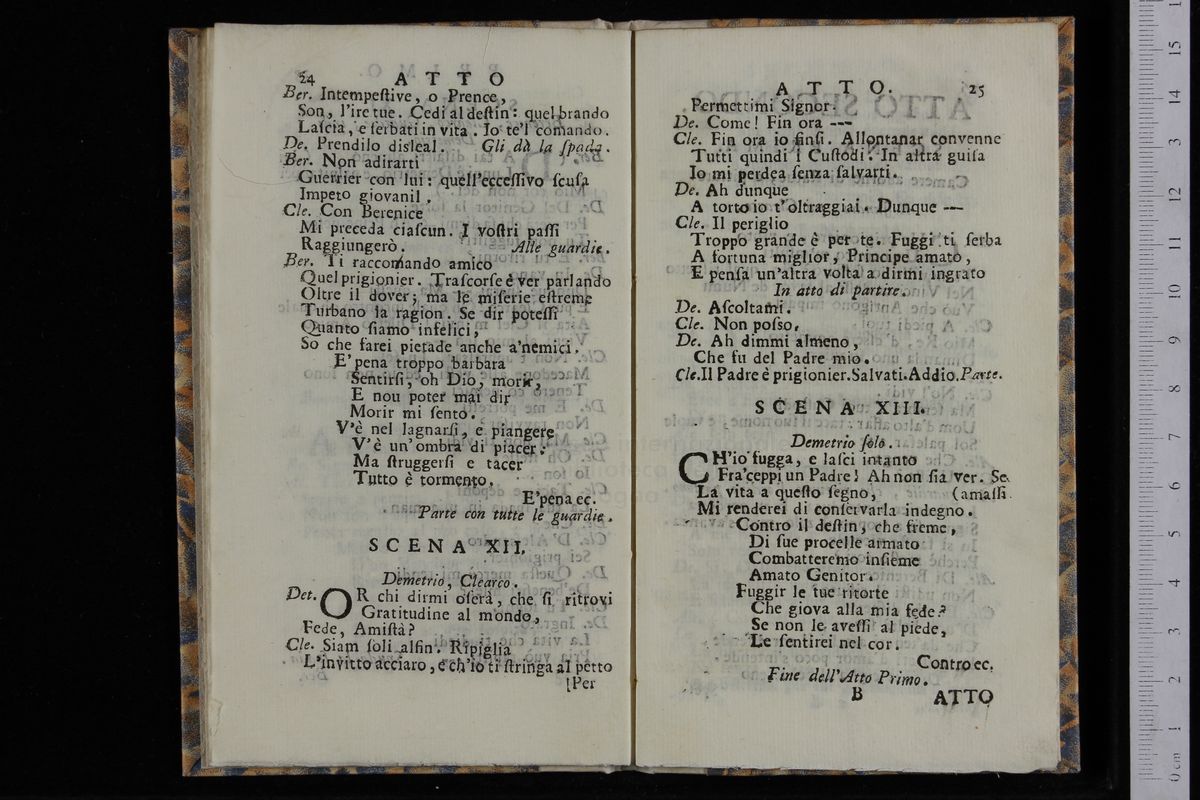 24 ATTO
Ber. Intempeſtive, o Prence,
Son, l'ire tue. Cedi al deſtin: quel brando
Laſcia, e ſerbati in vita. Io te'l comando.
De. Prendilo disleal. Gli dà la ſpada.
Ber. Non adirarti
Guerrier con lui: quell'ecceſſivo ſcuſa
Impeto giovanil.
Cle. Con Berenice
Mi preceda ciaſcun. I voſtri paſſi
Raggiungerò. Alle guardie.
Ber. Ti raccomando amico
Quel prigionier. Traſcorſe è ver parlando
Oltre il dover; ma le miſerie eſtreme
Turbano la ragion. Se dir poteſſi
Quanto ſiamo infelici,
So che farei pietade anche a'nemici.
E' pena troppo barbara
Sentirſi, oh Dio, morir,
E nou poter mai dir
Morir mi ſento.
V'è nel lagnarſi, e piangere
V'è un'ombra di piacer:
Ma ſtruggerſi e tacer
Tutto è tormento.
E'pena ec.
Parte con tutte le guardie.
SCENA XII.
Demetrio, Clearco.
Det. OR chi dirmi oſerà, che ſi ritrovi
Gratitudine al mondo,
Fede, Amiſtà?
Cle. Siam ſoli alfin. Ripiglia
L'invitto acciaro, e ch'io ti ſtringa al petto
[Per
ATTO. 25
Permettimi Signor.
De. Come! Fin ora ---
Cle. Fin ora io finſi. Allontanar convenne
Tutti quindi i Cuſtodi. In altra guiſa
Io mi perdea ſenza ſalvarti.
De. Ah dunque
A torto io t'oltraggiai. Dunque ---
Cle. Il periglio
Troppo grande è per te. Fuggi ti ſerba
A fortuna miglior, Principe amato,
E penſa un'altra volta a dirmi ingrato
In atto di partire.
De. Aſcoltami.
Cle. Non poſſo.
De. Ah dimmi almeno,
Che fu del Padre mio.
Cle. Il Padre è prigionier. Salvati. Addio. Parte.
SCENA XIII.
Demetrio ſolo.
CH'io fugga, e laſci intanto
Fra'ceppi un Padre! Ah non ſia ver. Se
La vita a queſto ſegno, (amaſſi
Mi renderei di conſervarla indegno.
Contro il deſtin, che freme,
Di ſue procelle armato
Combatteremo inſieme
Amato Genitor.
Fuggir le tue ritorte
Che giova alla mia fede?
Se non le aveſſi al piede,
Le ſentirei nel cor.
Contro ec.
Fine dell'Atto Primo.
B ATTO